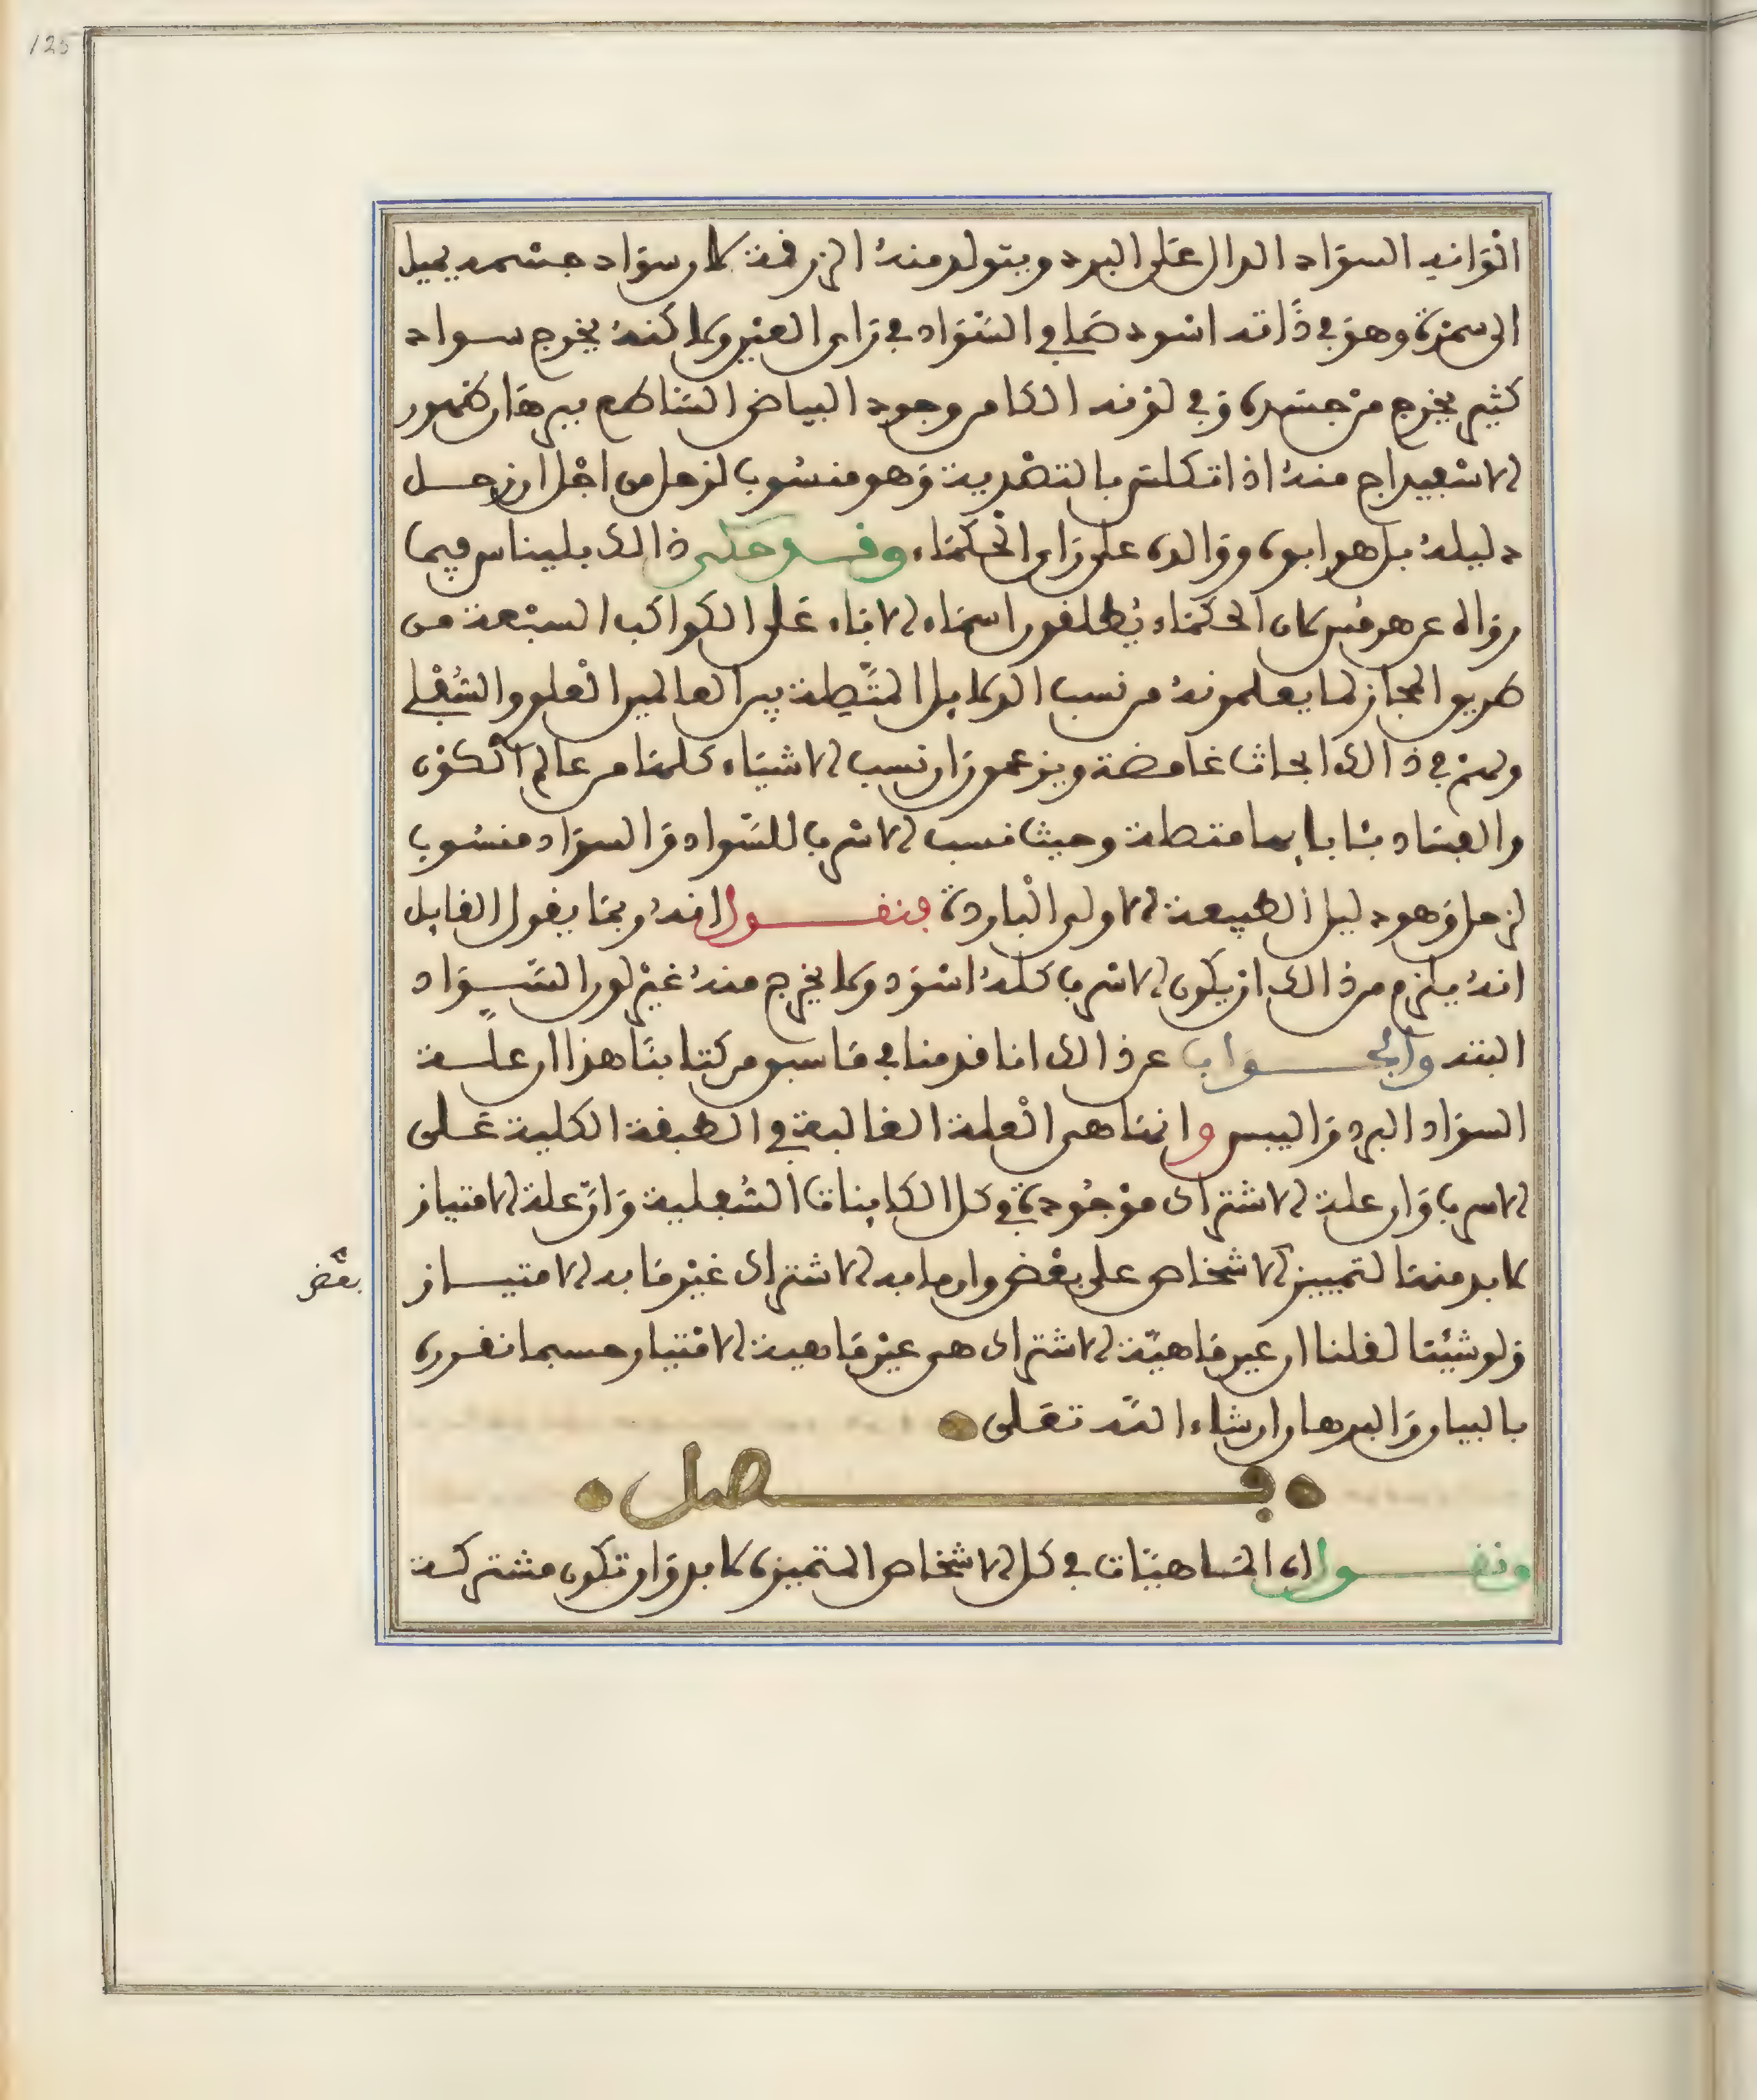 125
الوانه السواد الدال على البرد ويتولد منه الزرقة لان سواد جسمه يميل
الى سمرة وهو في ذاته اسود صافي السواد في راى العين ولاكنه يخرج سواد
كثير يخرج من جسده وفي لونه الكامن وجود البياض الساطع ببرهان ظهور
الاسفيداج منه اذا تكلس بالتصدية وهو منسوب لزحل من اجل ان زحل
دليله بل هو ابوه ووالده على راى الحكماء وقد حكى ذالك بليناس فيما
رواه عن هرمس كان الحكماء يطلقون اسماء الاباء على الكواكب السبعة من
طريق المجاز لما يعلمونه من نسب الدلايل المتصلة بين العالمين العلوي والسفلي
ولهم في ذالك ابحاث غامضة ويزعمون ان نسب الاشياء كلها من عالم الكون
والفساد بابايها متصلة وحيث نسب الاسرب للسواد والسواد منسوب
لزحل وهو دليل الطبيعة الاولى الباردة فنقول انه ربما يقول القايل
انه يلزم من ذالك ان يكون الاسرب كله اسود ولا يخرج منه غير لون السواد
البتة والجواب عن ذالك انا قدمنا في ما سبق من كتابنا هذا ان علة
السواد البرد واليبس وانما هي العلة الغالبة في الطبقة الكلية على
الاسرب وان علة الاشتراك موجودة في كل الكاينات السفلية وان علة الامتياز
لا بد منها لتمييز الاشخاص على بعض وان ما به الاشتراك غير ما به الامتياز
بعض
ولو شيئنا لقلنا ان عين ماهية الاشتراك هي عين ماهية الامتياز حسبما نقرره
بالبيان والبرهان ان شاء الله تعلى
فصل
ونقول ان الماهيات في كل الاشخاص المتميزة لا بد وان تكون مشتركة